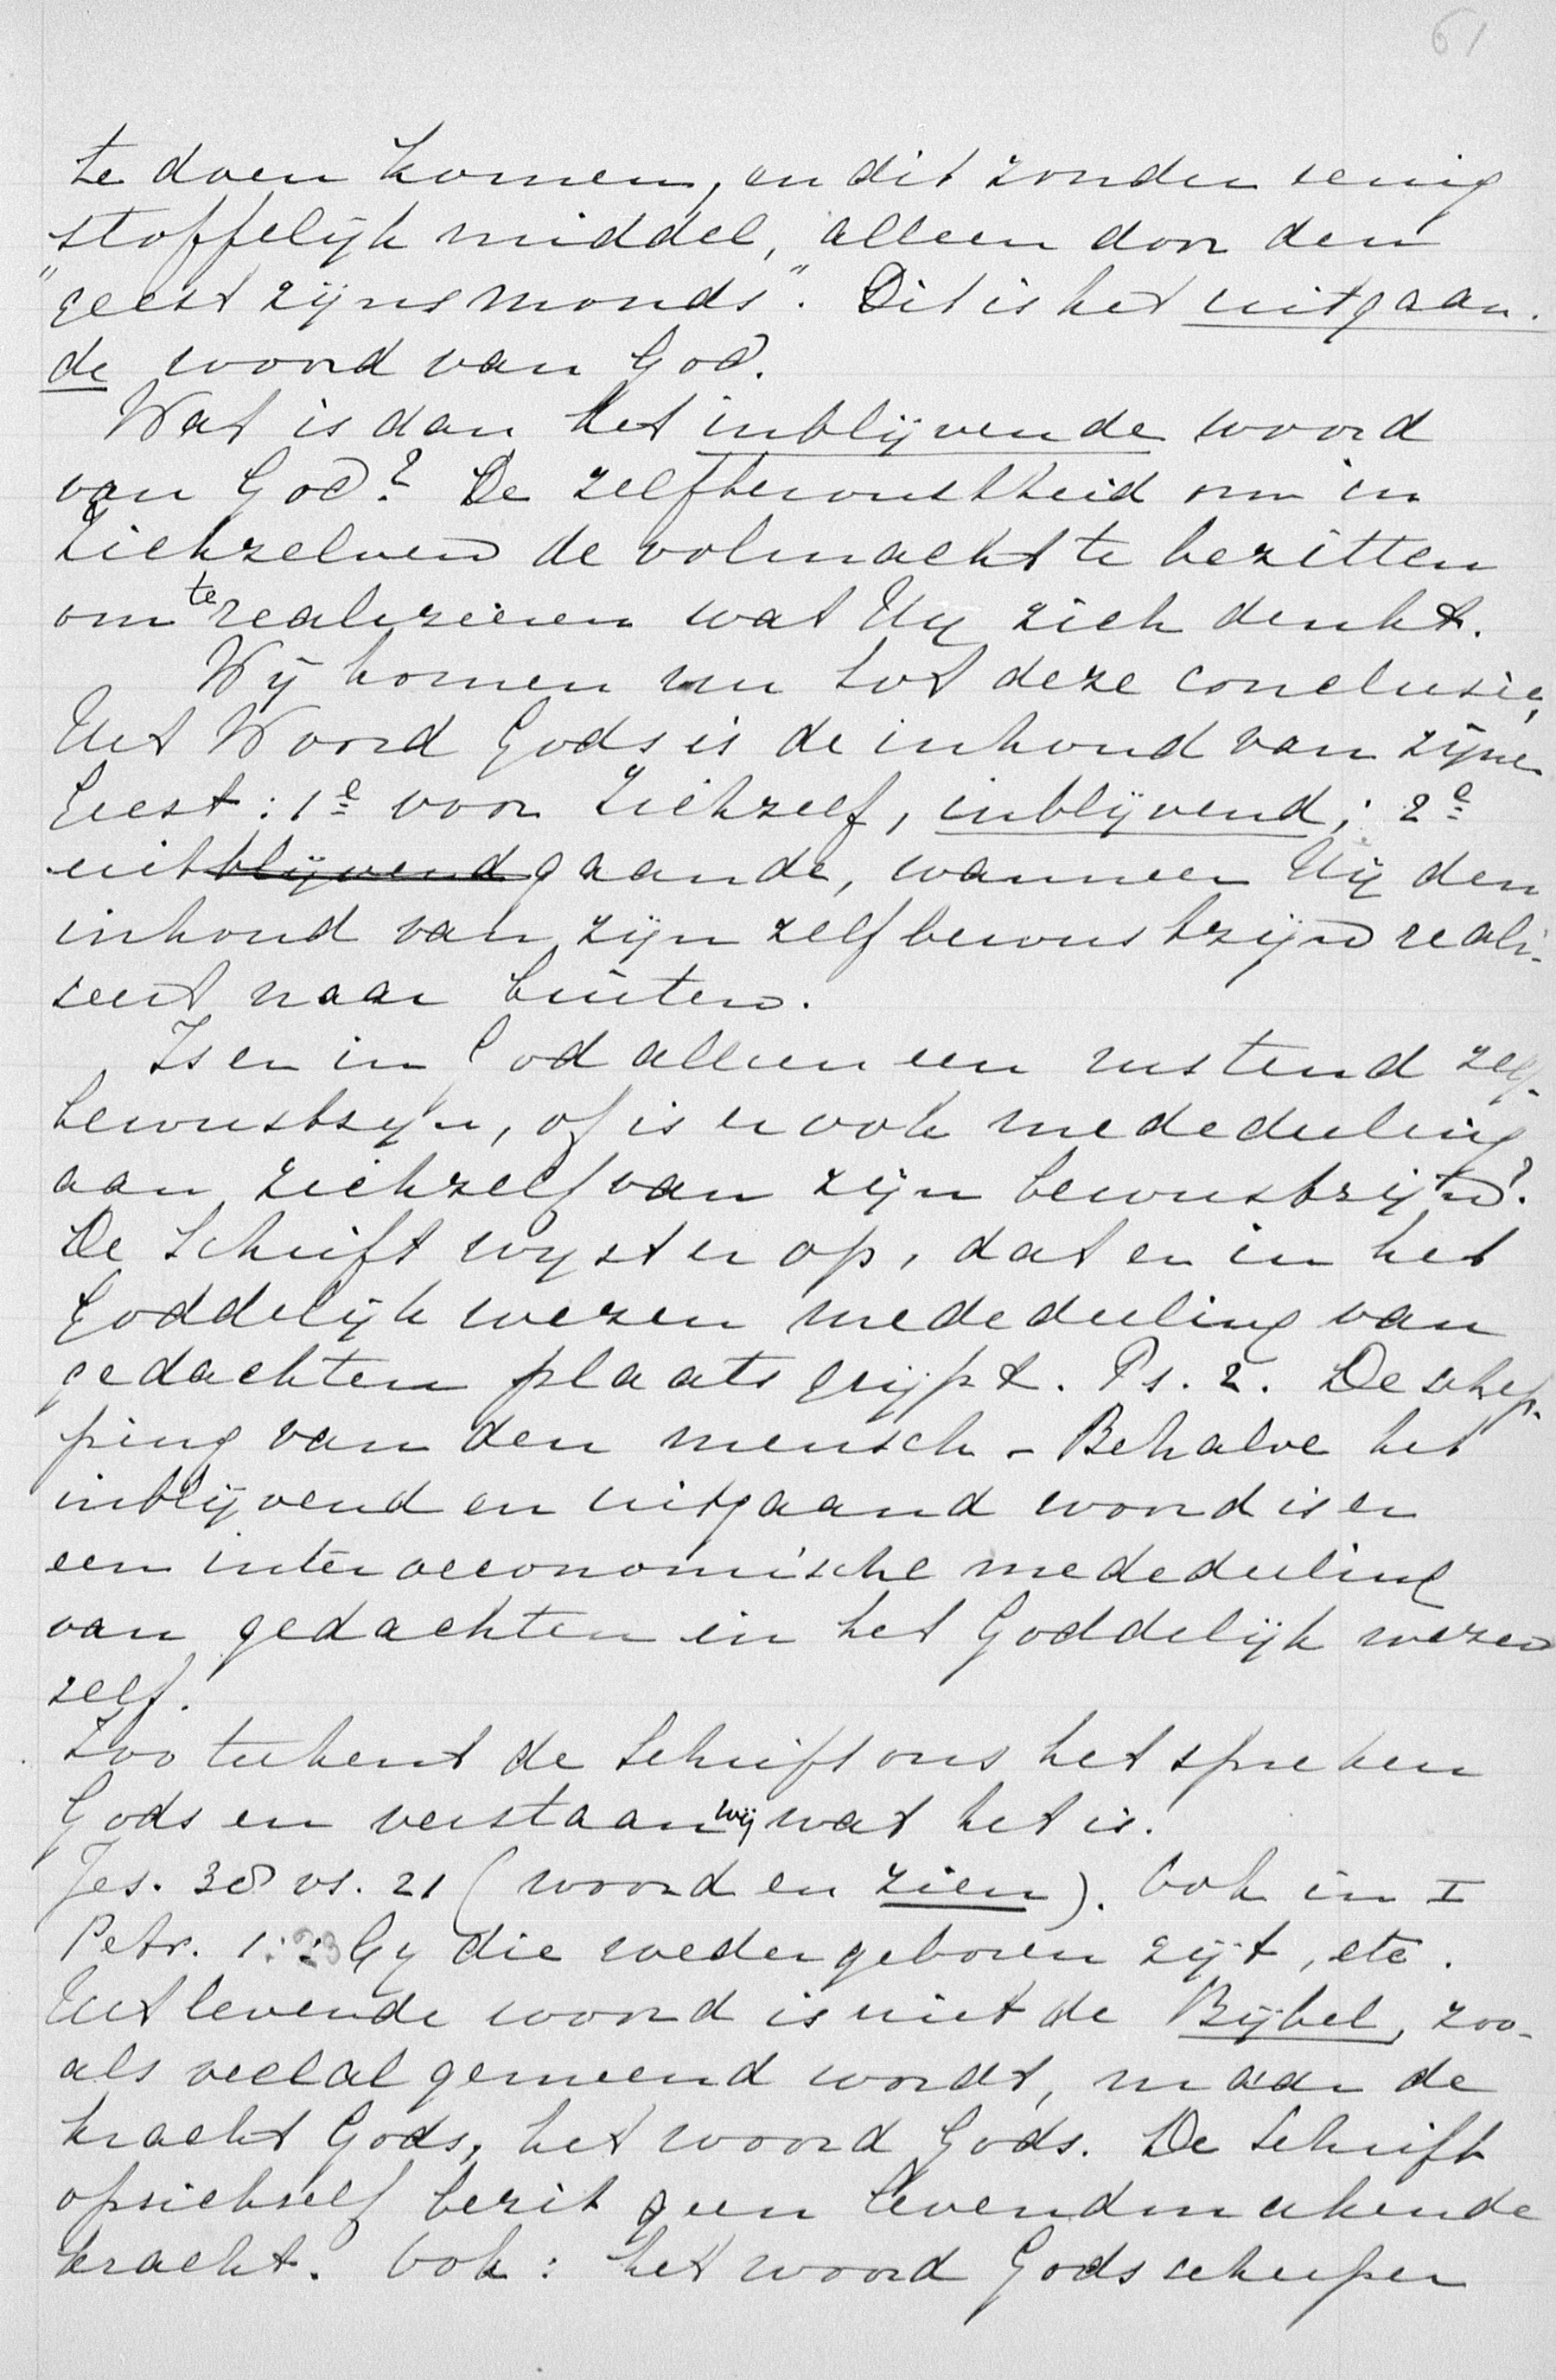 61
te doen komen, en dit zonder eenig
stoffelijk middel, alleen door den
"geest zijns monds". Dit is het uitgaan-
de woord van God.
Wat is dan het inblijvende woord
van God? De zelfbewustheid om in
Zichzelven de volmacht te bezitten
om te realizeeren wat Hij zich denkt.
Wij komen nu tot deze conclusie,
Het Woord Gods is de inhoud van zijne
Geest: 1e voor Zichzelf, inblijvend; 2e
uitblijvendgaande, wanneer Hij den
inhoud van zijn zelfbewustzijn reali-
seert naar buiten.
Is er in God alleen een rustend zelf-
bewustzijn, of is er ook mededeeling
aan Zichzelf van zijn bewustzijn?
De Schrift wijst er op, dat er in het
Goddelijk wezen mededeeling van
gedachten plaats grijpt. Ps. 2. De schep-
ping van den mensch - Behalve het
inblijvend en uitgaand woord is er
een inter oeconomische mededeeling
van gedachten in het Goddelijk wezen
zelf.
Zoo teekent de Schrift ons het spreken
Gods en verstaan wij wat het is.
Jes. 30 vs. 21 (woord en zien). Ook in I
Petr. 1:23 Gij die wedergeboren zijt, etc.
Het levende woord is niet de Bijbel, zoo-
als veelal gemeend wordt, maar de
kracht Gods, het woord Gods. De Schrift
opzichself bezit geen levendmakende
kracht. Ook: het woord Gods scherper